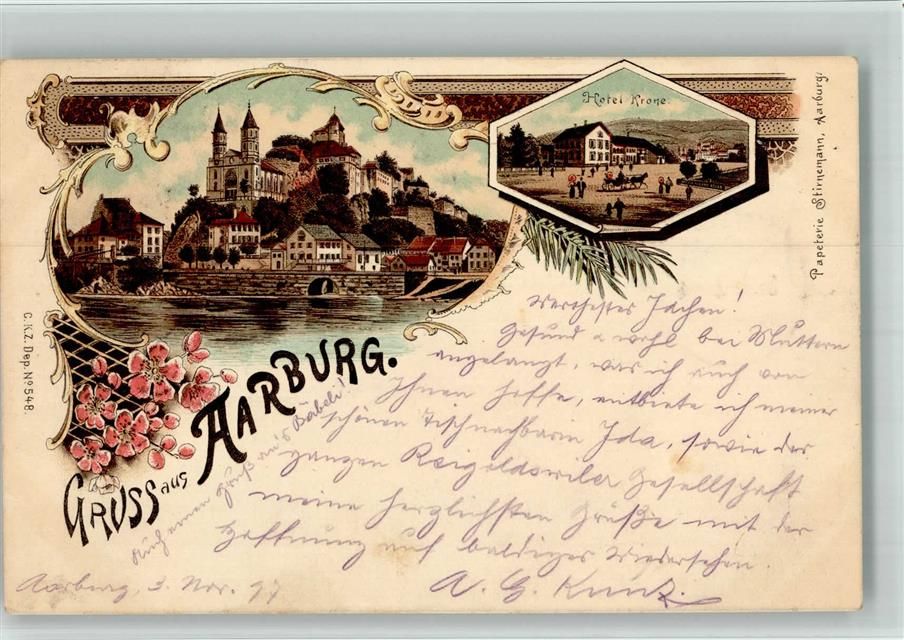 Hotel Krone.
Papeterie Stirnemann, Aarburg.
C.K.Z. Dep. № 548.
GRUSS aus AARBURG.
Werthester Jachen!
Gesund & wohl bei Muttern
angelangt, was ich auch von
Ihnen hoffe, entbiete ich meiner
schönen Tischnachbarin Ida, sowie der
ganzen Reigoldswiler Gesellschaft
meine herzlichsten Grüße mit der
Hoffnung auf baldiges Wiedersehen.
A. G. Kunz.
Auch einen Gruß an's Bäbeli!
Aarburg, 3. Nov. 97